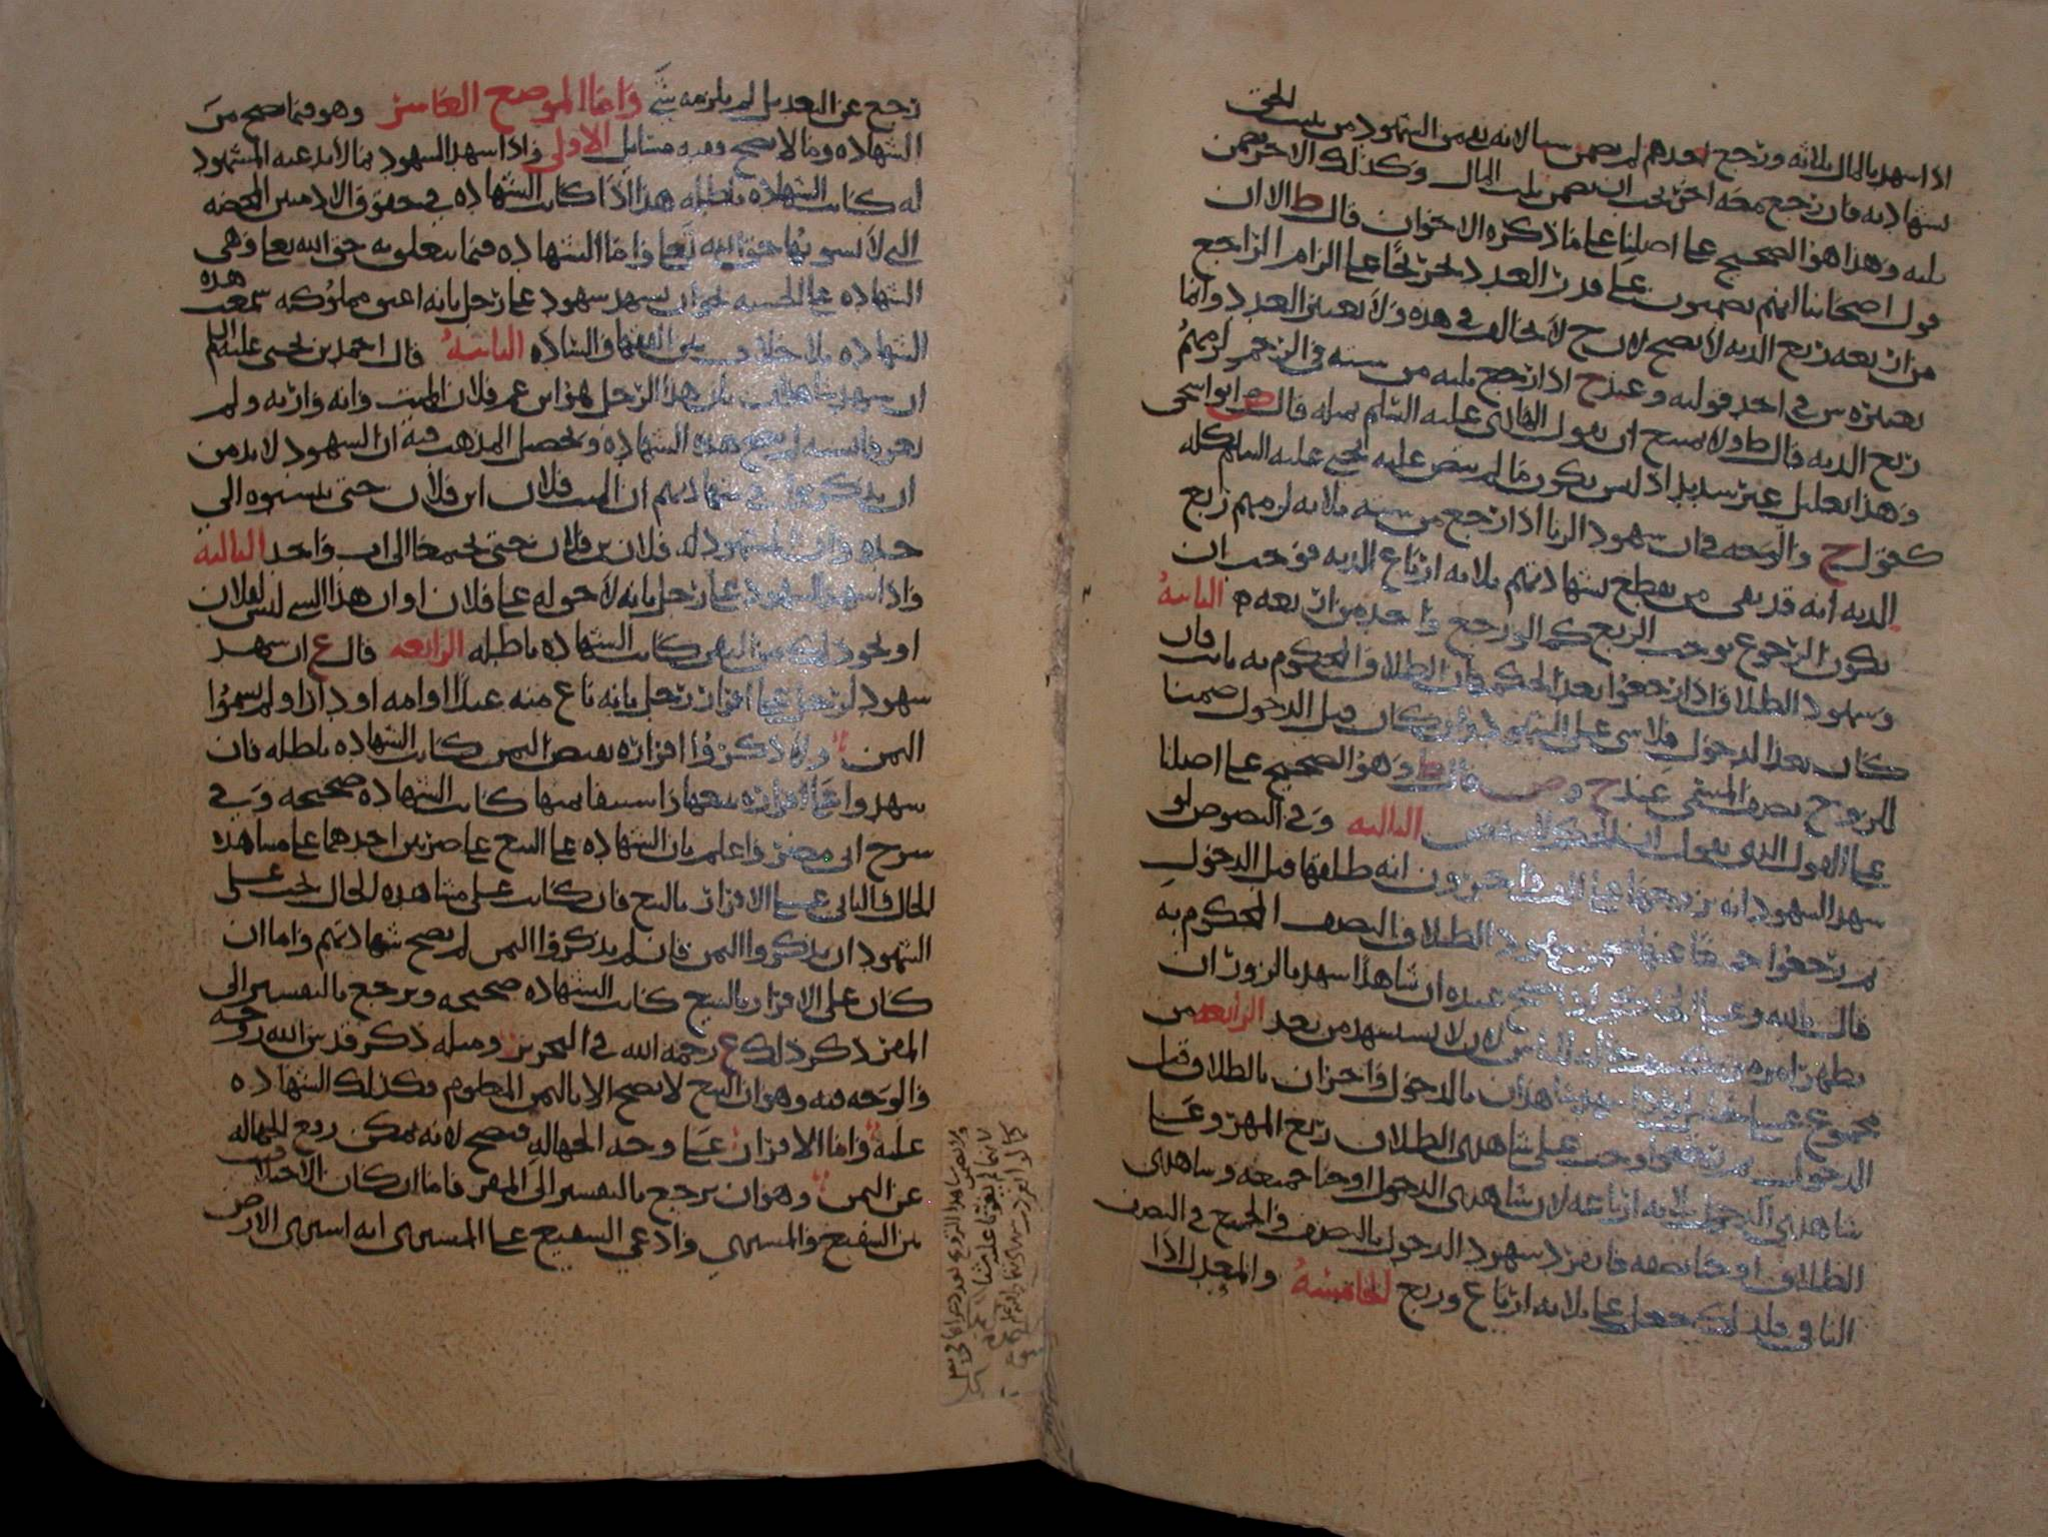 اذا شهد بالمال ثلاثه ورجع احدهم لم يضمن شيا لانه بقي من الشهود من يثبت الحق
بشهادته فان رجع معه اخر يجب ان يضمن ثلث المال وكذلك الاخر يضمن
ثلثه وهذا هو الصحيح على اصلنا على ما ذكره الاخوان قال ط الا ان
قول اصحابنا انهم يضمنون على قدر العدد
من اربعه ربع الديه لا يصح لان ح لا يخالف في هذه ولا يعتبر العدد وانما
يعتبره ش في احد قوليه وعند ح اذا رجع ثلثه من سته في الرجم لزمهم
ربع الديه قال ط ولا يمتنع ان يقول الهادي عليه السلم بمثله قال ص ابو اسحق
وهذا تعليل غير سديد اذ ليس يكون ما لم ينص عليه يحيى عليه السلم كله
كقول ح والوجه في ان شهود الزنا اذا رجع من سته ثلاثه لزمهم ربع
الديه انه قد بقي من يقطع بشهادتهم ثلاثه ارباع الديه فوجب ان
يكون الرجوع يوجب الربع كما لو رجع واحد من اربعه الثانيه
وشهود الطلاق اذا رجعوا بعد الحكم فان الطلاق المحكوم به ثابت فان
كان بعد الدخول فلا شي على الشهود وان كان قبل الدخول ضمنا
للزوج نصف المسمى عند ح و ص قال ط وهو الصحيح على اصلنا
على القول الذي يقول ان الحكم لا ينقض الثالثه وفي النصوص لو
شهد الشهود انه تزوجها على الف واخرون انه طلقها قبل الدخول
ثم رجعوا جميعا ضمن شهود الطلاق النصف المحكوم به
قال بالله وعلى الحاكم اذا صح عنده ان شاهدا شهد بالزور ان
يظهر امره للناس لان لا يستشهد من بعد الرابعه من
مجموع علي خليل شاهدان بالدخول واخران بالطلاق قبل
الدخول ثم رجعوا وجب على شاهدي الطلاق ربع المهر وعلى
شاهدي الدخول ثلاثه ارباعه لان شاهدي الدخول اوجبا جميعه وشاهدي
الطلاق اوجبا نصفه فانفرد شهود الدخول بالنصف والجميع في النصف
الثاني فلذلك جعل على ثلاثه ارباع وربع الخامسه والمعدل اذا
رجع عن التعديل لم يلزمه شي واما الموضع العاشر وهو فيما يصح من
الشهاده وما لا يصح وفيه مسايل الاولى واذا شهد الشهود بما لا يدعيه المشهود
له كانت الشهاده باطله هذا اذا كانت الشهاده في حقوق الادميين المحضه
التي لا يشوبها حق الله تعا واما الشهاده فيما يتعلق به حق الله تعا وهي
الشهاده على الحسبه نحو ان يشهد شهود على رجل بانه اعتق مملوكه سمعت هذه
الشهاده بلا خلاف بين الفقها والساده الثانيه قال احمد بن يحيى عليه السلم
ان شهد شاهدان بان هذا الرجل هو ابن عم فلان الميت وانه وارثه ولم
يعرفا نسبه لم تصح هذه الشهاده وتحصيل المذهب فيه ان الشهود لا بد من
ان يذكروا في شهادتهم ان الميت فلان ابن فلان حتى ينسبوه الى
جده وان المشهود له فلان بن فلان حتى يجتمعا الى اب واحد الثالثه
واذا شهد الشهود على رجل بانه لا حق له على فلان او ان هذا الشي ليس لفلان
او نحو ذلك من النفي كانت الشهاده باطله الرابعه قال ع ان شهد
شهود لرجل على اقرار رجل بانه باع منه عبدا او امه او دارا ولم يسموا
الثمن ولا ذكروا اقراره بقبض الثمن كانت الشهاده باطله فان
شهدوا على اقراره ببيعها واستيفا ثمنها كانت الشهاده صحيحه وفي
شرح ابي مضر واعلم بان الشهاده على البيع على ضربين احدهما على مشاهده
الحال والثاني على الاقرار بالبيع فان كانت على مشاهده الحال يجب على
الشهود ان يذكروا الثمن فان لم يذكروا الثمن لم يصح شهادتهم واما ان
كان على الاقرار بالبيع كانت الشهاده صحيحه ويرجع بالتفسير الى
المقر ذكر ذلك ع رحمه الله في التحرير ومثله ذكر قدس الله روحه
والوجه فيه وهو ان البيع لا يصح الا بالثمن المعلوم فكذلك الشهاده
عليه واما الاقرار على وجه الجهاله فيصح لانه يمكن رفع الجهاله
عن الثمن وهو ان يرجع بالتفسير الى المقر فاما ان كان الاختلاف
بين الشفيع والمشتري وادعى الشفيع على المشتري انه اشترى الارض